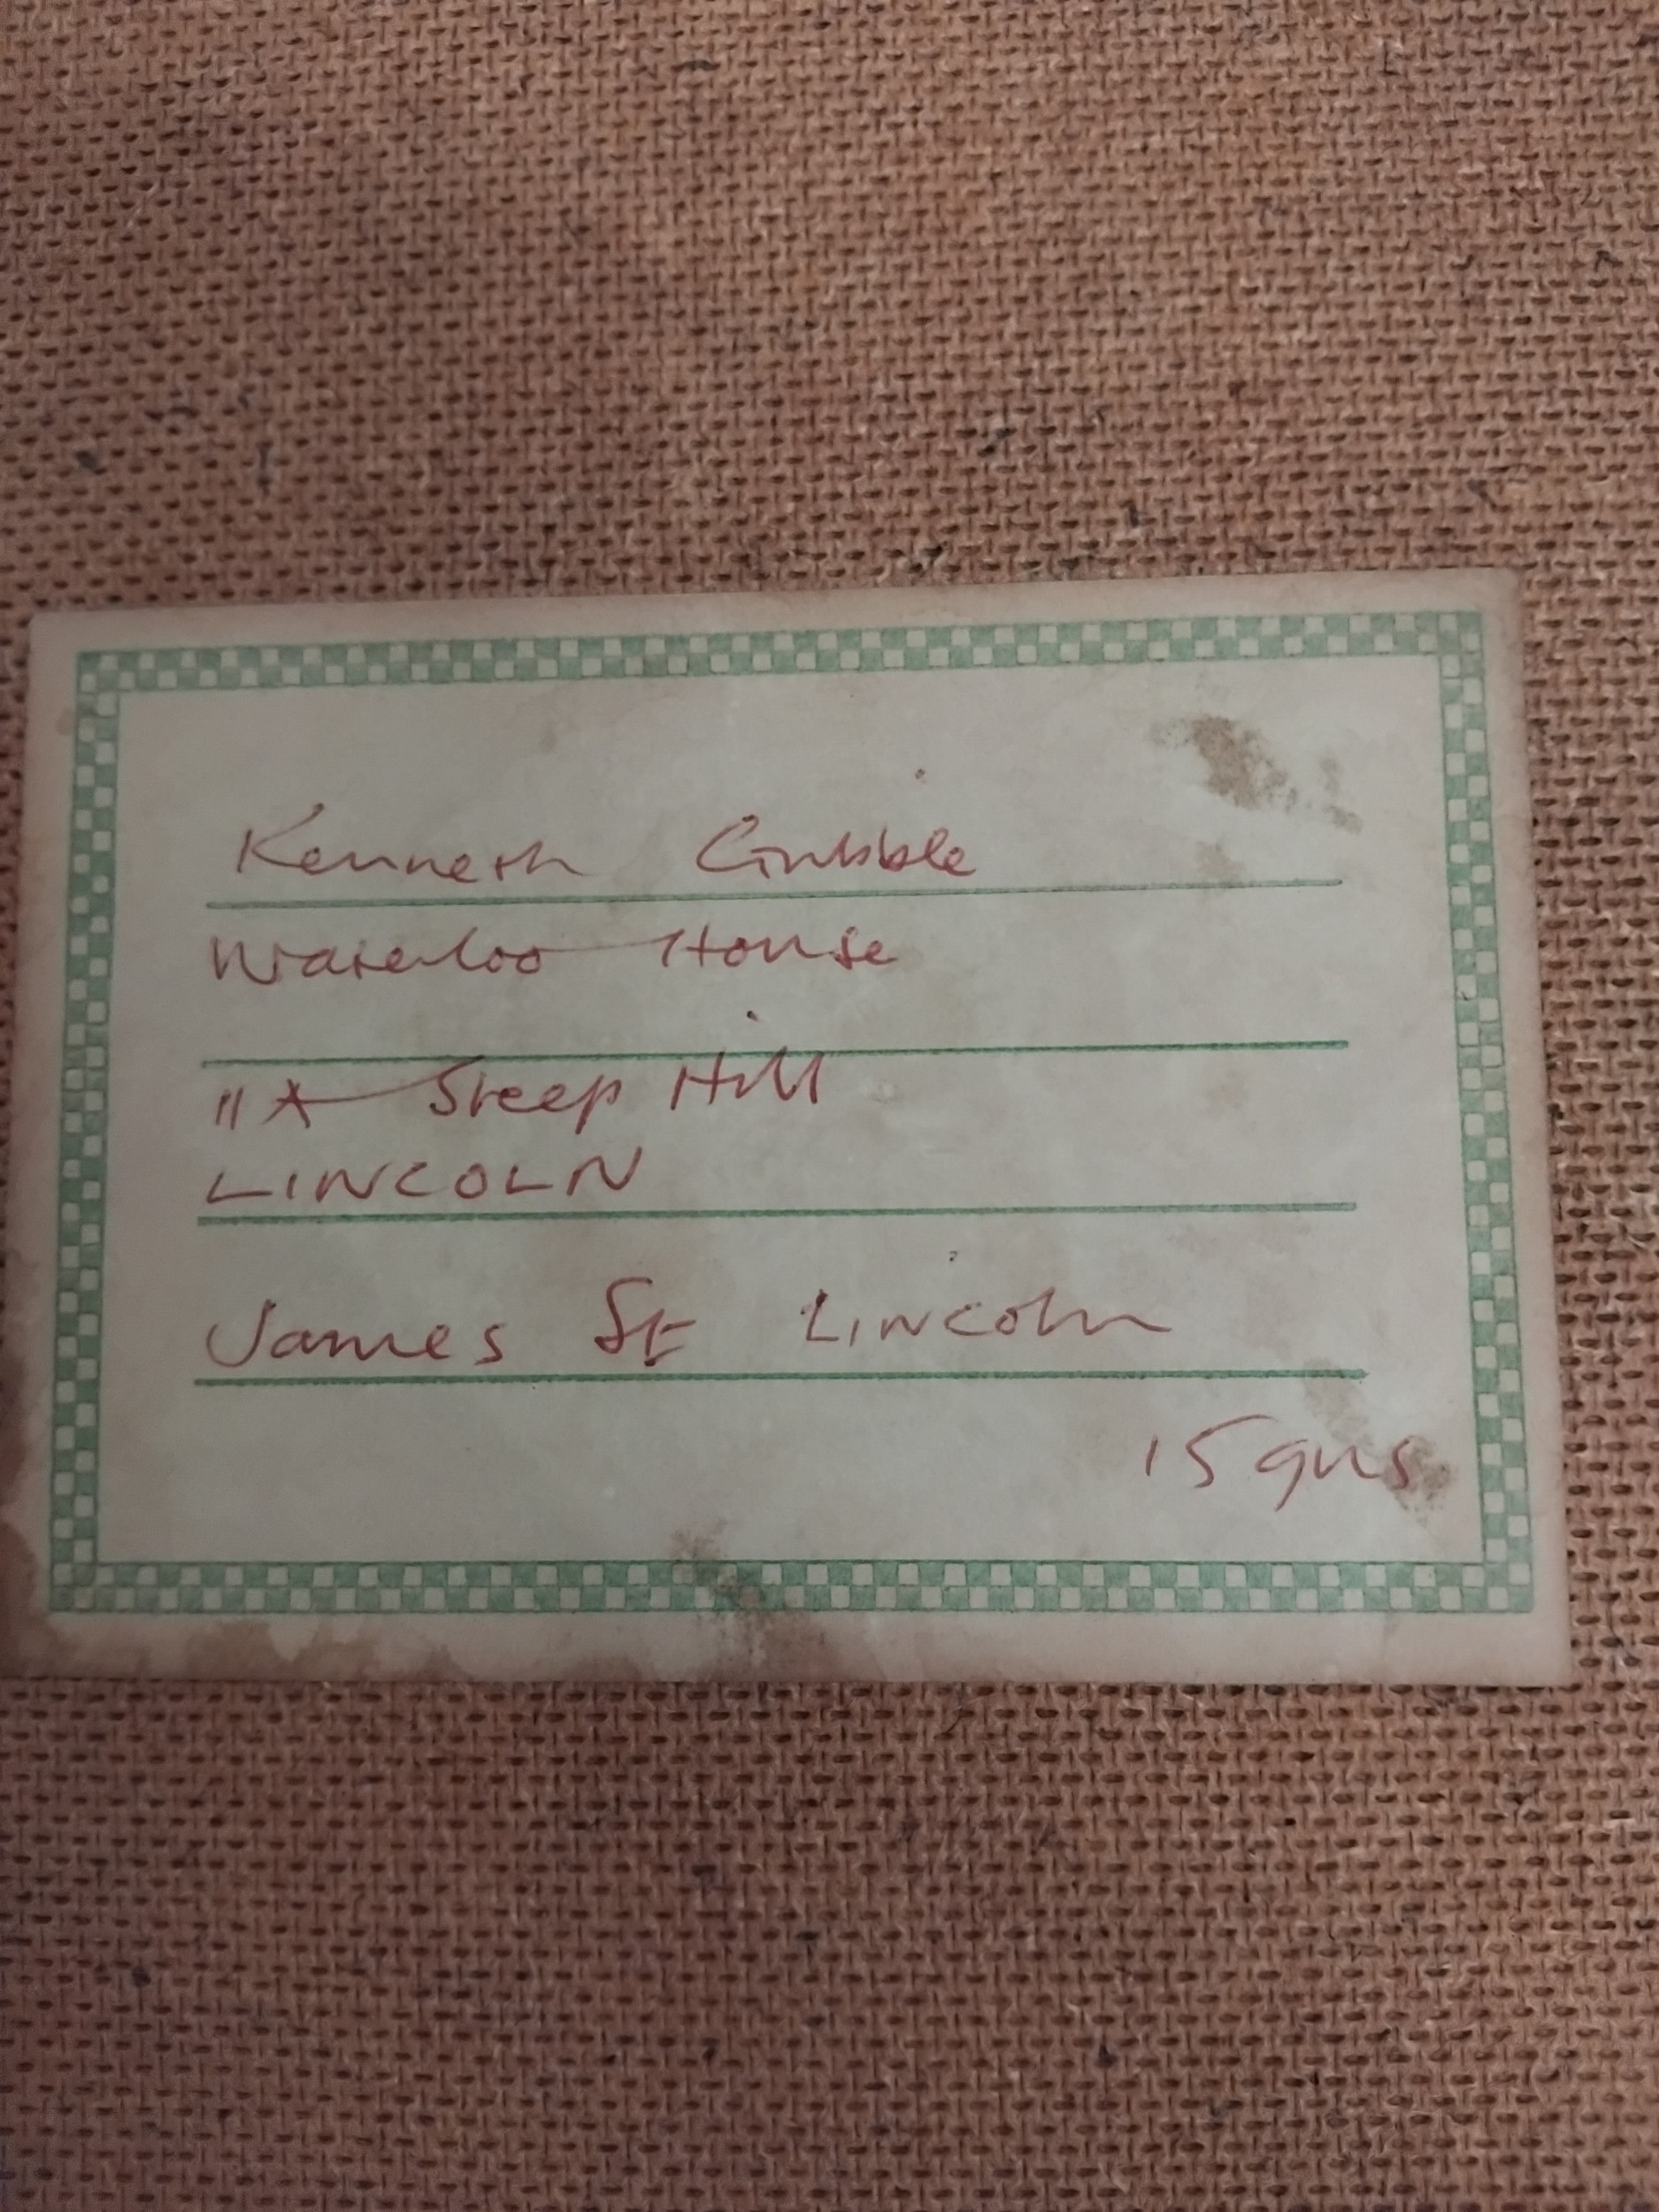 Kenneth Gribble
Waterloo House
11A Steep Hill
LINCOLN
James St Lincoln
15 gns